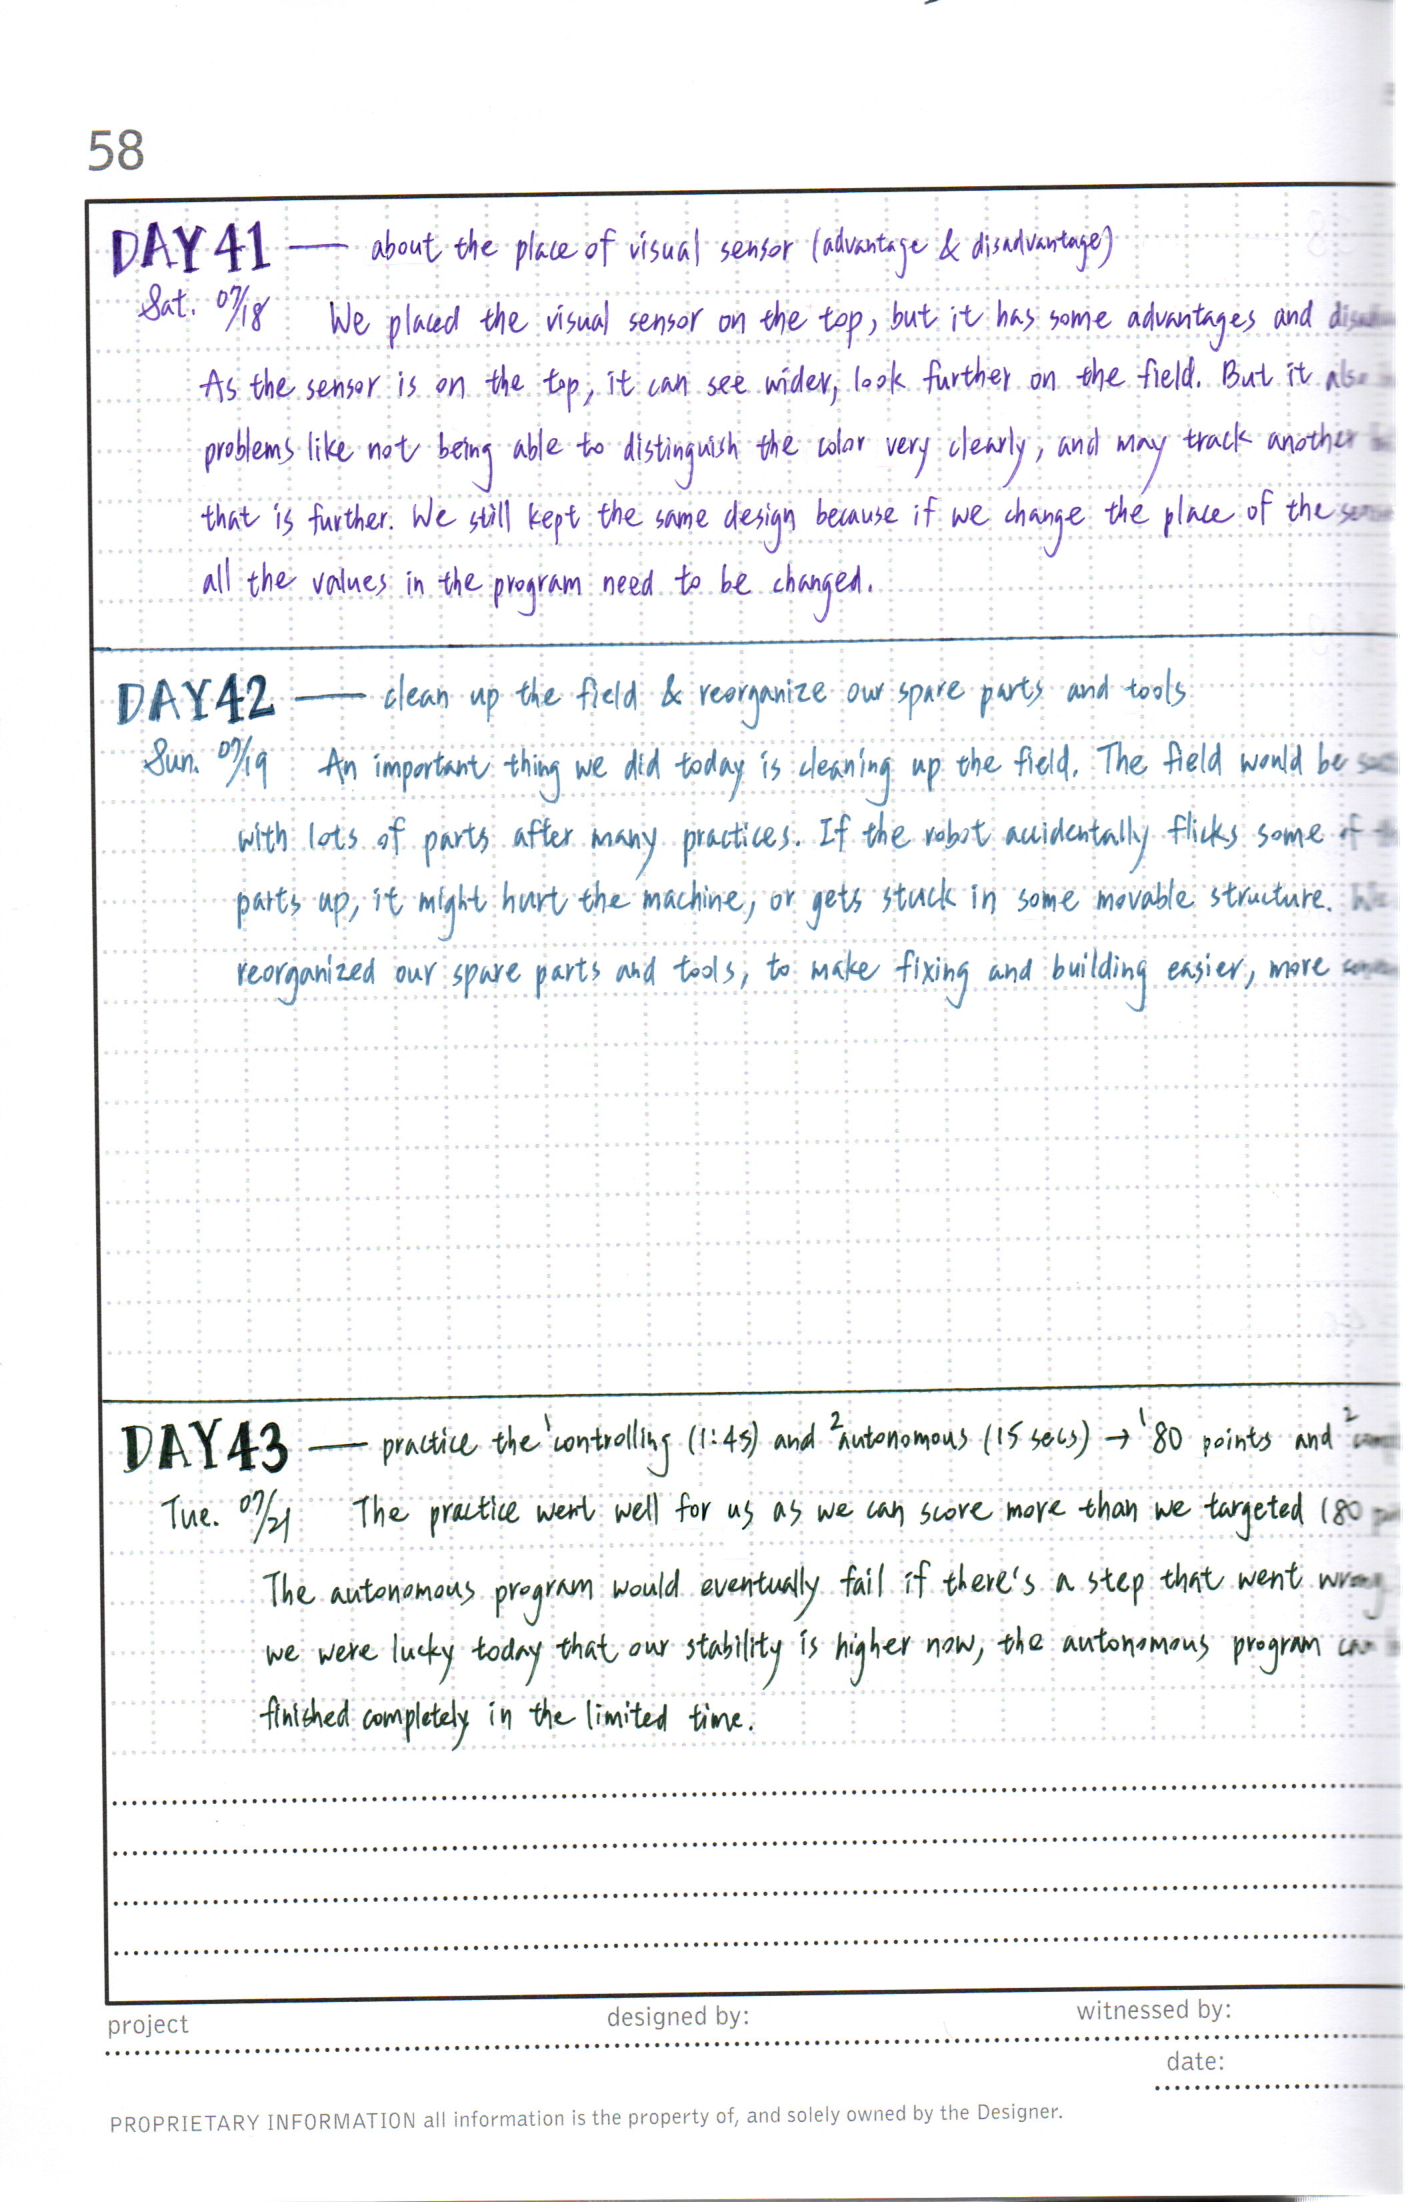 58
DAY 41 — about the place of visual sensor (advantage & disadvantage)
Sat. 07/18 We placed the visual sensor on the top, but it has some advantages and
As the sensor is on the top, it can see wider, look further on the field. But it also
problems like not being able to distinguish the color very clearly, and may track another
that is further. We still kept the same design because if we change the place of the
all the values in the program need to be changed.
DAY 42 — clean up the field & reorganize our spare parts and tools
Sun. 07/19 An important thing we did today is cleaning up the field. The field would be
with lots of parts after many practices. If the robot accidentally flicks some of
parts up, it might hurt the machine, or gets stuck in some movable structure. We
reorganized our spare parts and tools, to make fixing and building easier, more
DAY 43 — practice the ¹controlling (1:45) and ²autonomous (15 secs) → ¹80 points and ²
Tue. 07/21 The practice went well for us as we can score more than we targeted (80
The autonomous program would eventually fail if there's a step that went wrong
we were lucky today that our stability is higher now, the autonomous program can
finished completely in the limited time.
project designed by: witnessed by:
date:
PROPRIETARY INFORMATION all information is the property of, and solely owned by the Designer.